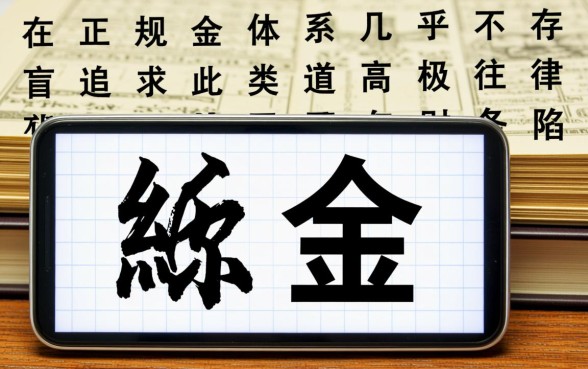 在正规金体系几乎不存
盲追求此类道高极往律
陷
金